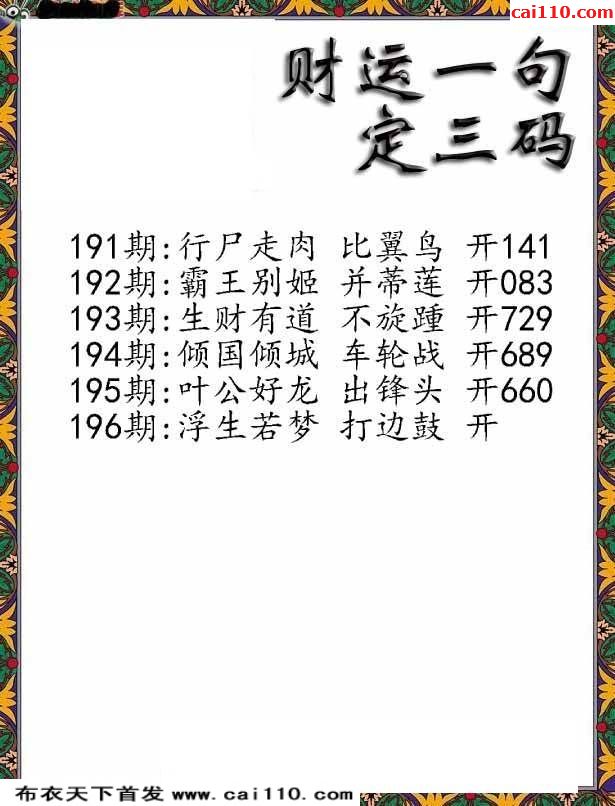 cai110.com
财运一句
定三码
191期:行尸走肉 比翼鸟 开141
192期:霸王别姬 并蒂莲 开083
193期:生财有道 不旋踵 开729
194期:倾国倾城 车轮战 开689
195期:叶公好龙 出锋头 开660
196期:浮生若梦 打边鼓 开
布衣天下首发 www.cai110.com